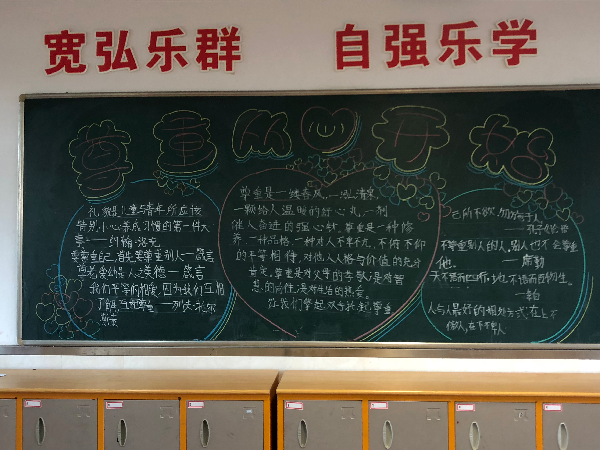 宽弘乐群
自强乐学
尊重从心开始
礼貌是儿童与青年所应该
特别小心养成习惯的第一件大
事—约翰·洛克
尊重自己,首先要尊重别人—箴言
—箴言
我们平等的相爱,因为我们互相
了解,互相尊重
尊重是一缕春风,一泓清泉,
一颗给人温暖的舒心丸,一剂
催人奋进的强心针,尊重是一种修
养,一种品格,一种对人不卑不亢,不俯不仰
的平等相待,对他人人格与价值的充分
肯定,尊重是对父母的孝敬,是对智
慧的向往,是对生活的热爱。
让我们擎起双手托起尊重。
己所不欲,勿施于人
—孔子
不尊重别人的人,别人也不会尊重
他。—席勒
人与人最好的相处方式,在上不